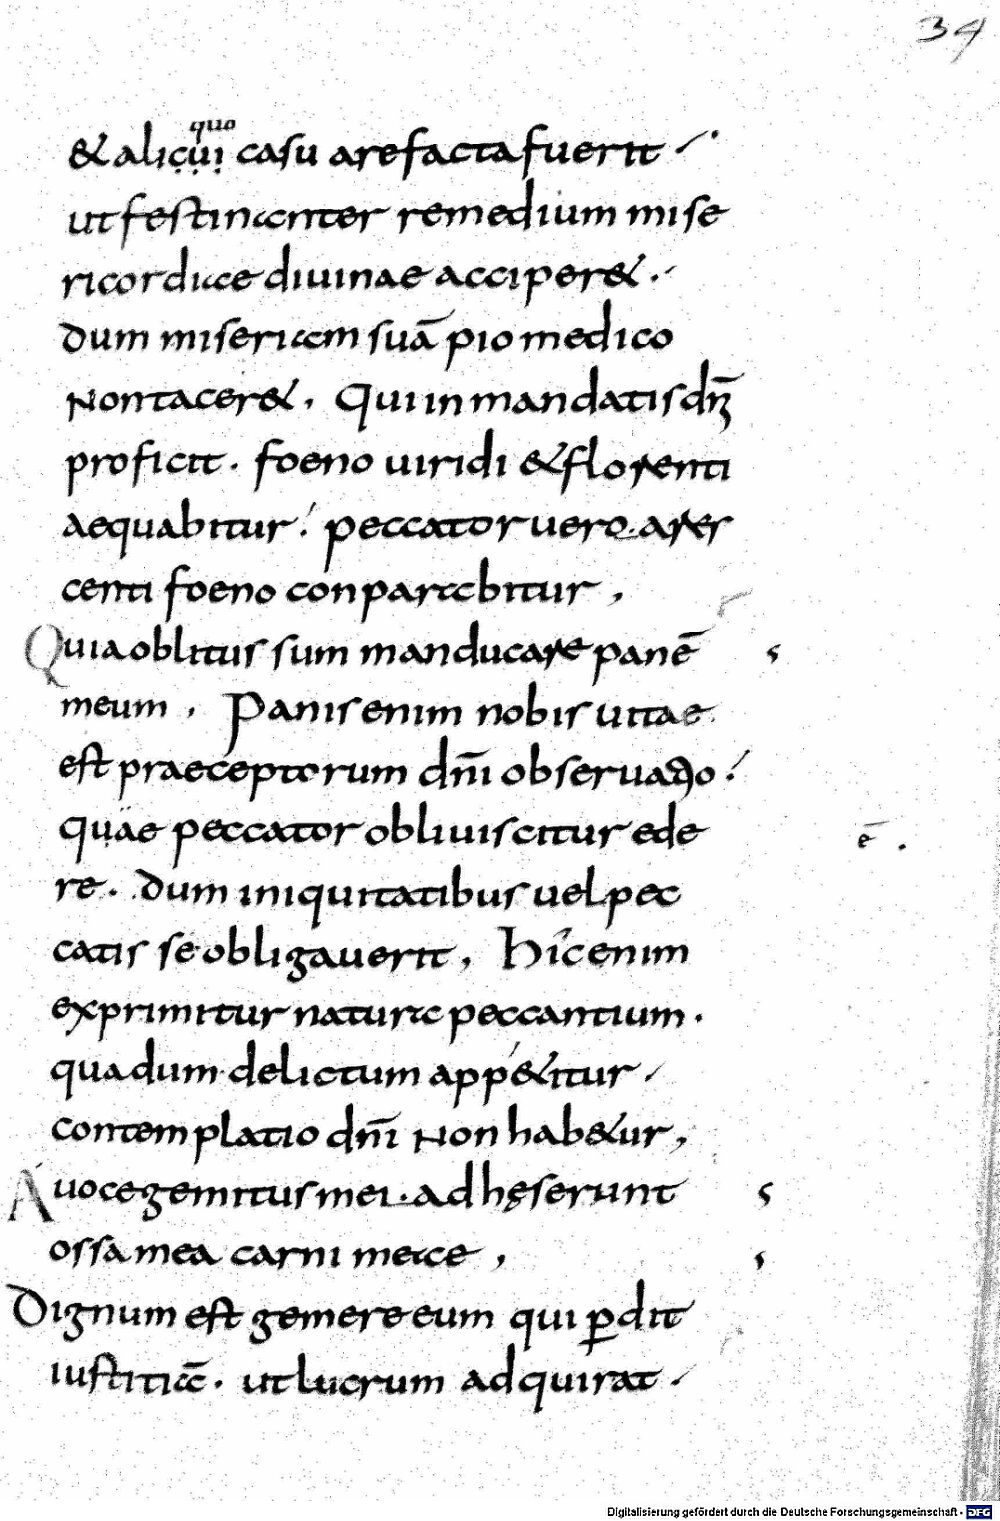 34
quo
& aliqui casu arefacta fuerit
ut festinanter remedium mise
ricordiae divinae acciper&.
dum miseriam suā pio medico
Non tacer&, Qui in mandatis dn̄i
proficit. foeno uiridi & florenti
aequabitur! peccator uero. ares
centi foeno conparabitur,
Quia oblitus sum manducare panē
meum, Panis enim nobis uitae
est praeceptorum dn̄i obseruatio!
quae peccator obliuiscitur ede
ē.
re. dum iniquitatibus uel pec
catis se obligauerit, Hic enim
exprimitur natura peccantium.
qua dum delictum app&itur
contemplatio dn̄i Non hab&ur,
A uoce gemitus mei. adhęserunt
ossa mea carni meae,
Dignum est gemere eum qui ꝑdit
iustitiā. ut lucrum adquirat
Digitalisierung gefördert durch die Deutsche Forschungsgemeinschaft - DFG